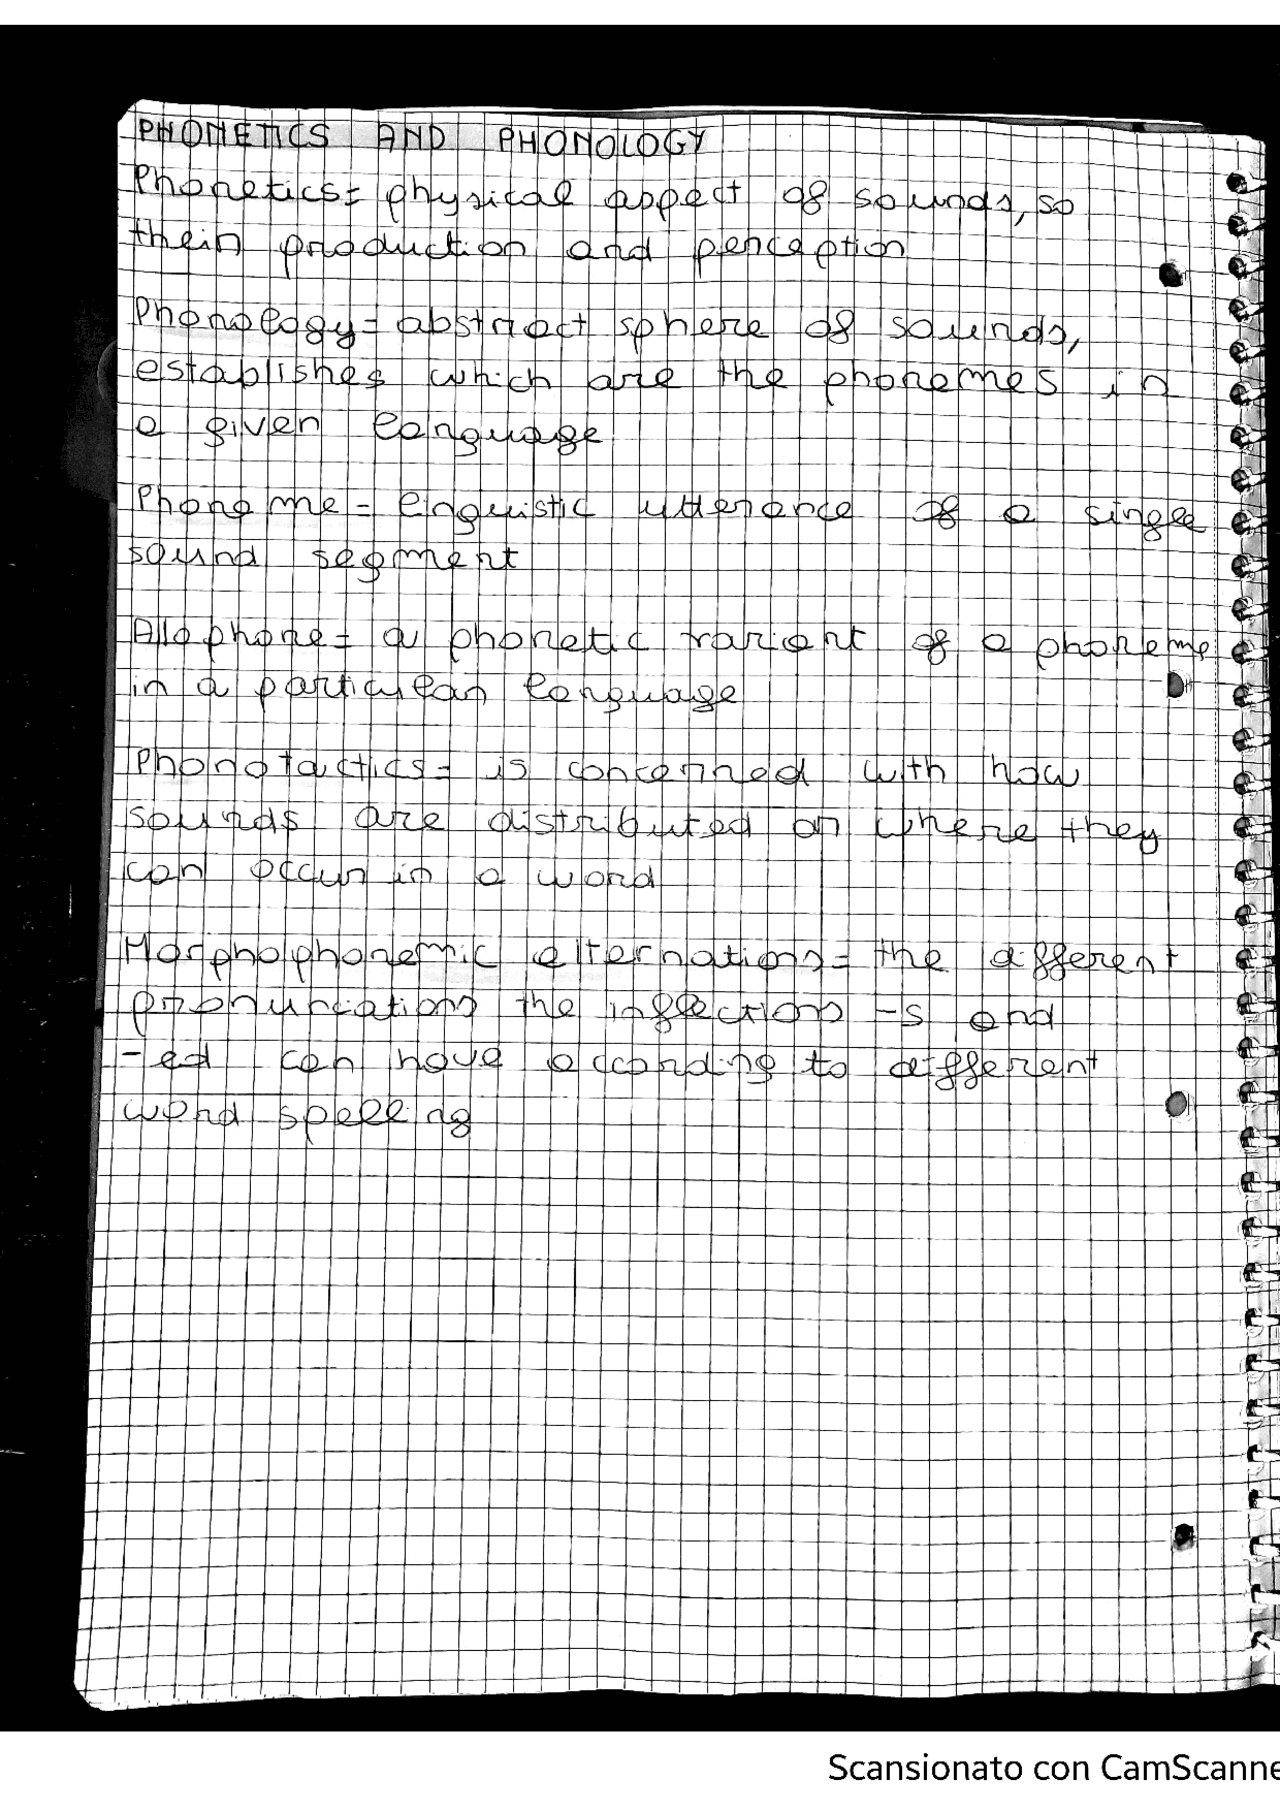 PHONETICS AND PHONOLOGY
Phonetics= physical aspect of sounds, so
their production and perception
Phonology= abstract sphere of sounds,
establishes which are the phonemes in
a given language
Phoneme= linguistic utterance of a single
sound segment
Allophone= a phonetic variant of a phoneme
in a particular language
Phonotactics= is concerned with how
sounds are distributed or where they
can occur in a word
Morphophonemic alternations= the different
pronunciations the inflections -s and
-ed can have according to different
word spelling
Scansionato con CamScanne